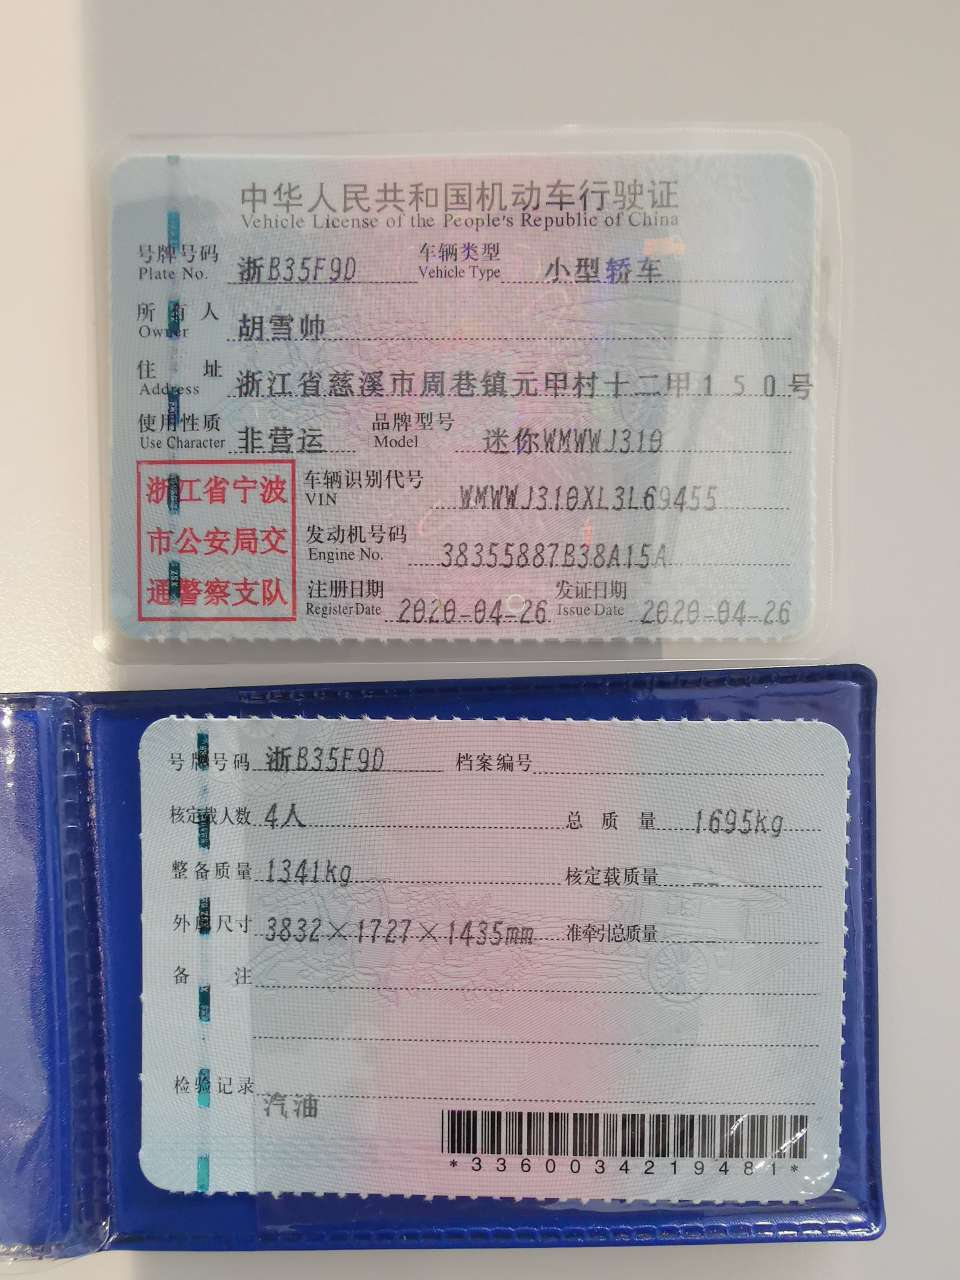 中华人民共和国机动车行驶证
Vehicle License of the People's Republic of China
号牌号码 浙B35F9D 车辆类型 小型轿车
Plate No. Vehicle Type
所有人 胡雪帅
Owner
住址 浙江省慈溪市周巷镇元甲村十二甲150号
Address
使用性质 非营运 品牌型号 迷你WMWWJ310
Use Character Model
浙江省宁波
市公安局交
通警察支队
车辆识别代号 WMWWJ310XL3L69455
VIN
发动机号码 38355887B38A15A
Engine No.
注册日期 2020-04-26 发证日期 2020-04-26
Register Date Issue Date
号牌号码 浙B35F9D 档案编号
核定载人数 4人 总质量 1695kg
整备质量 1341kg 核定载质量 --
外廓尺寸 3832×1727×1435mm 准牵引总质量 --
备注
检验记录 汽油
*3360034219481*